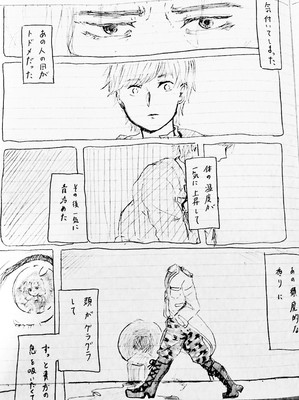 気付いてしまった
あの人の目が
トドメだった
体の温度が
一気に上昇して
その後一気に
青冷めた
あの
香りに
頭がグラグラ
して
ずっと貴方の
息を吸いたくて